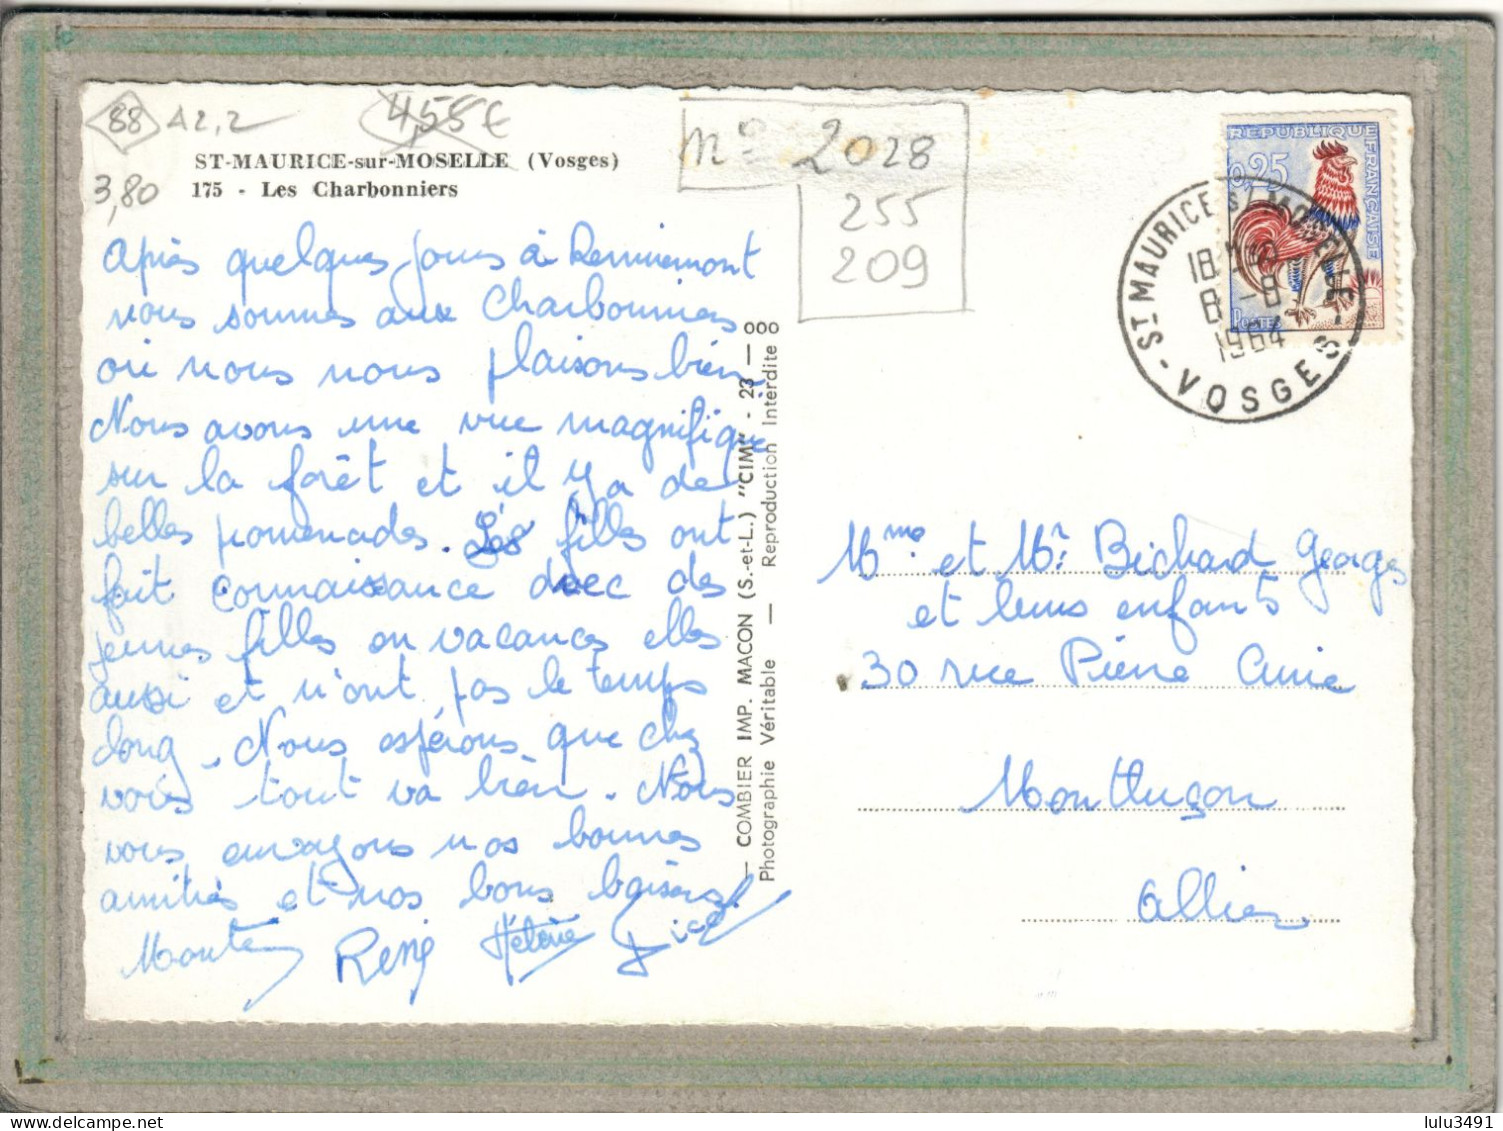 88 A2,2 4,55 €
3,80
ST-MAURICE-sur-MOSELLE (Vosges)
175 - Les Charbonniers
n° 2028
255
209
Après quelques jours à Remiremont
nous sommes aux Charbonniers
où nous nous plaisons bien
Nous avons une vue magnifique
sur la forêt et il y a de
belles promenades. Les filles ont
fait connaissance avec des
jeunes filles en vacances elles
aussi et n'ont pas le temps
long. Nous espérons que chez
vous tout va bien. Nous
vous envoyons nos bonnes
amitiés et nos bons baisers.
René Hélène
— COMBIER IMP. MACON (S.-et-L.) "CIM" - 23 — ooo
Photographie Véritable — Reproduction Interdite
REPUBLIQUE FRANÇAISE
0,25
POSTES
ST MAURICE S/ MOSELLE
18H
8 -8
1964
- VOSGES -
Mme et Mr Bichard Georges
et leurs enfants
30 rue Pierre Curie
Montluçon
Allier
lulu3491